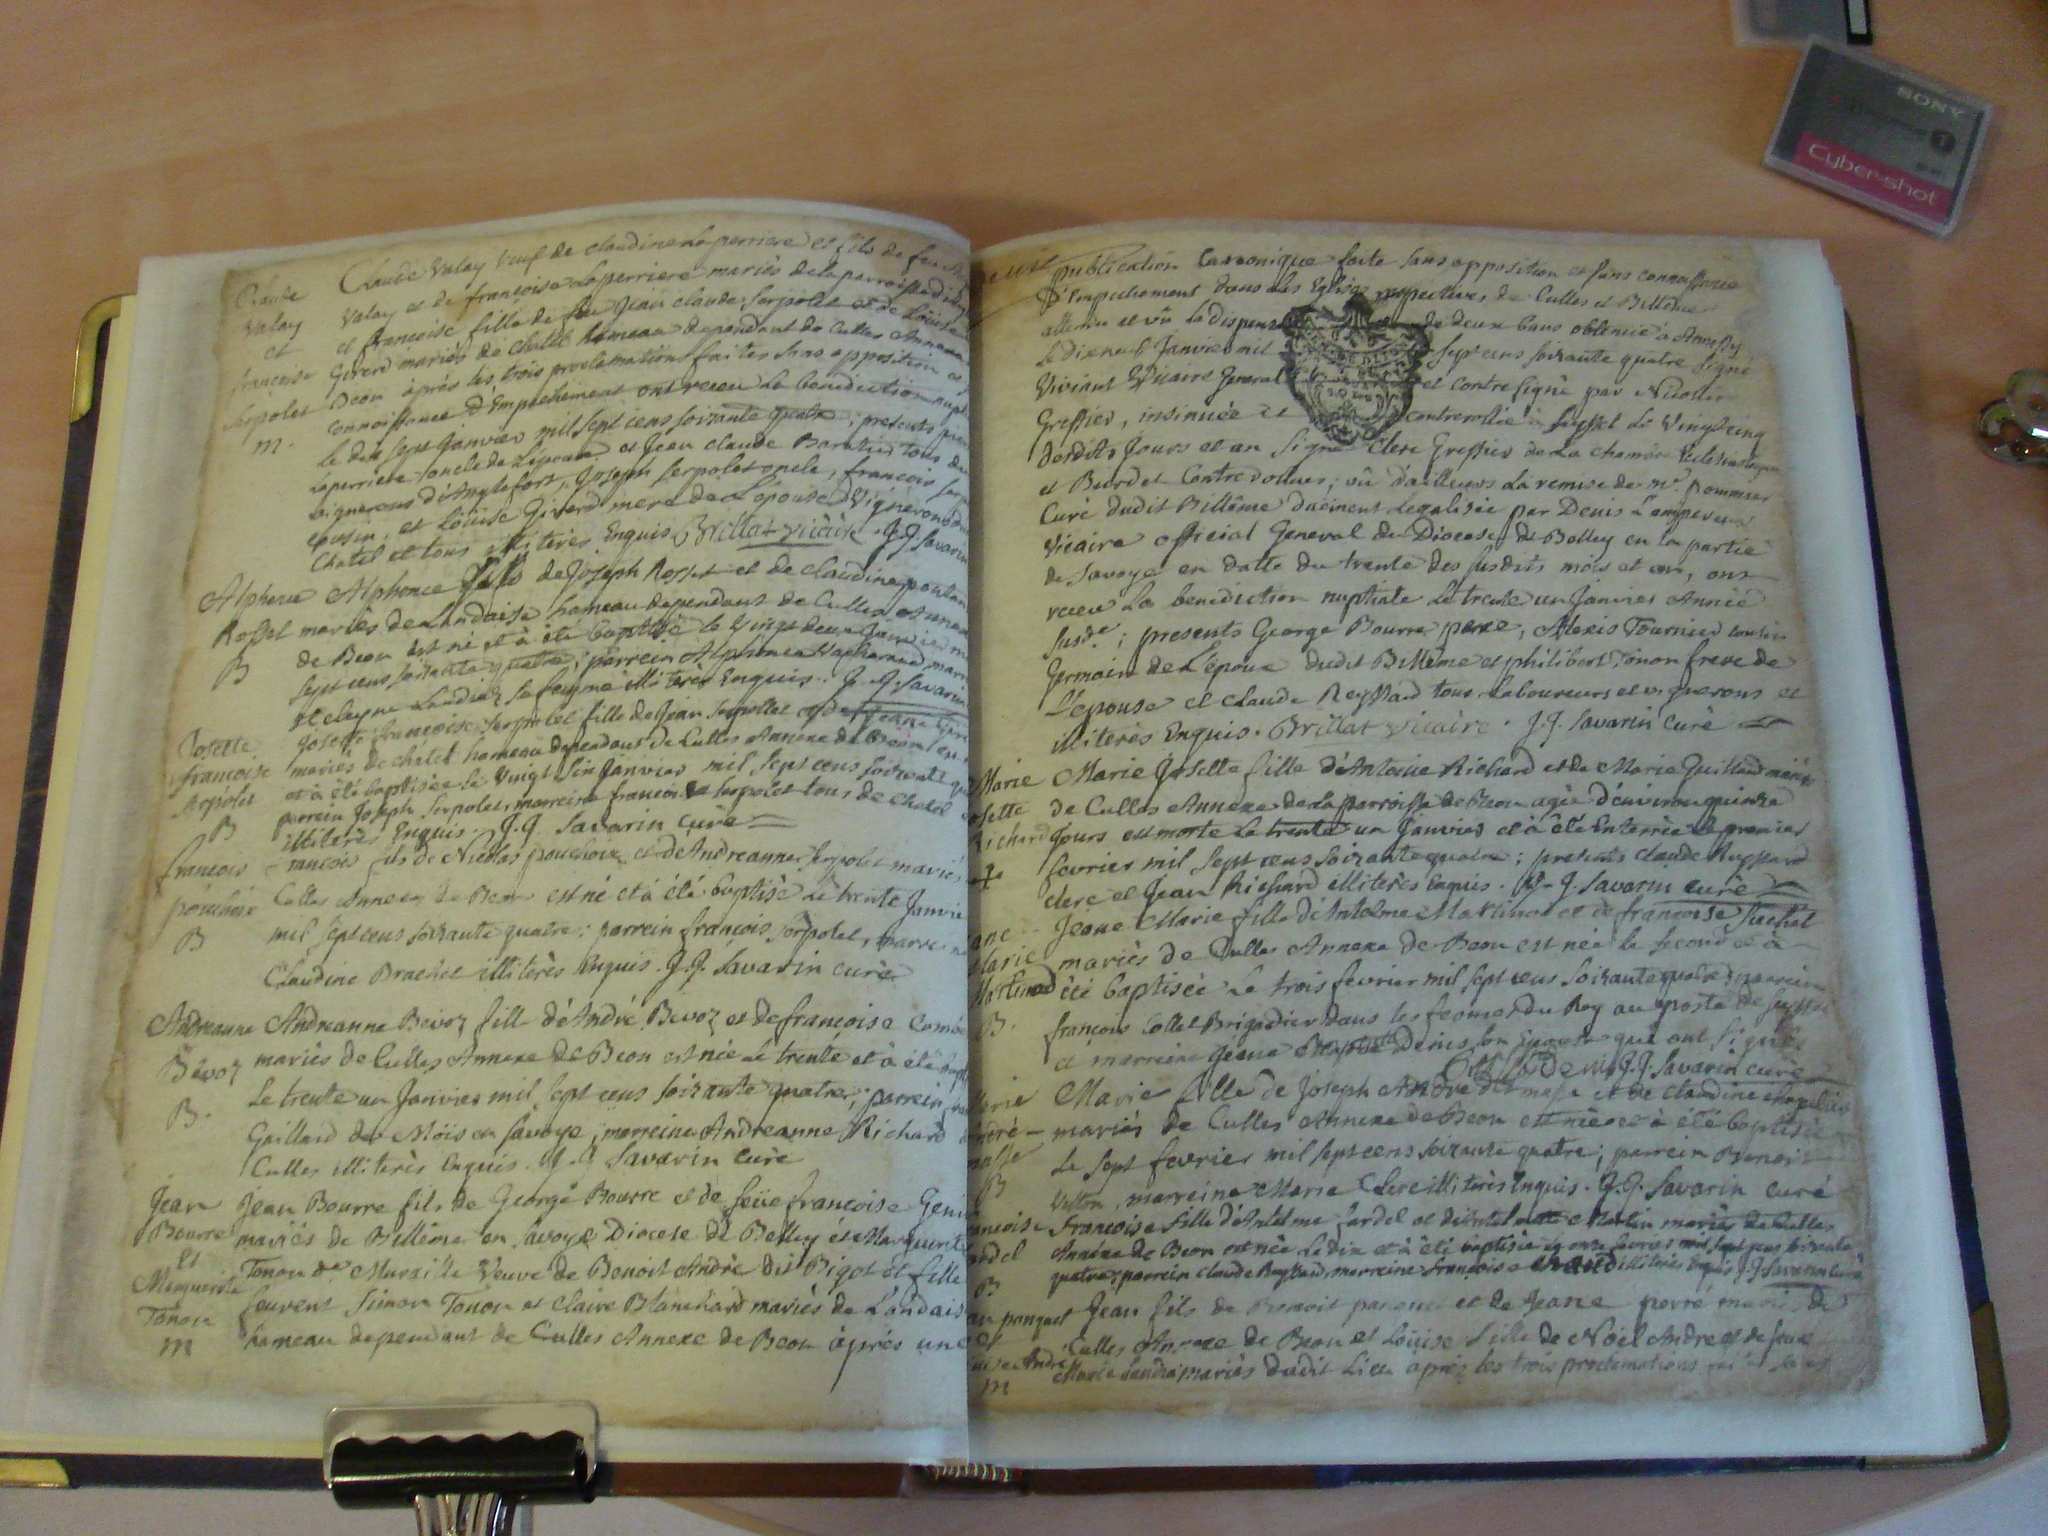 Claude Valay veuf de claudine Laperriere et fils de feu
Claude
Valay
et
françoise
Serpolet
m.
Valay et de françoise Laperriere mariés de la parroisse
et françoise fille de feu Jean claude Serpolet et de Loüise
Girerd mariés de chatel hameau dependant de Culles Annexe
Beon après les trois proclamations faites sans opposition
connoissance d'Empechement ont receu La benediction
le dix sept Janvier mil sept cens soixante quatre ; presents
Laperriere oncle de L'epoux et Jean Claude tous
vignerons d'Anglefort, Joseph Serpolet oncle, francois
cousin, et Loüise Girerd mere de L'epouse vignerons
Chatel et tous illiterès Enquis Brillat vicaire. J.J. Savarin
Alphonce
Rosset
B
Alphonce fils de Joseph Rosset et de claudine
mariés de Landaise hameau dependant de Culles Annexe
de Beon est né et à été baptisé le vingt deux Janvier
sept cens soixante quatre ; parrein Alphonce
sa femme illiterès Enquis. J.J. Savarin
Josette
francoise
Serpolet
B
Josette francoise Serpolet fille de Jean Serpollet et de Jeane
mariés de chatel hameau dependant de Culles Annexe de Beon
et à été baptisée le vingt six Janvier mil sept cens soixante
parrein Joseph Serpolet, marreine francoise Serpolet tous de chatel
illiterès Enquis. J.J. Savarin curé
francois
pouchoix
B
francois fils de Nicolas pouchoix et d'Andreanne Serpolet mariés
Culles Annexe de Beon est né et à été baptisé Le trente Janvie
mil sept cens soixante quatre : parrein françois Serpolet,
Claudine Brachet illiterès Enquis. J.J. Savarin curé
Andreanne
Bévoz
B.
Andreanne Bevoz fille d'André Bevoz et de francoise
mariés de Culles Annexe de Beon est née Le trente et à été
Le trente un Janvier mil sept cens soixante quatre, parrein
Gaillard de Moïs en Savoye, marreine Andreanne Richard
Culles illiterès Enquis. J.J. Savarin curé
Jean
Bourre
et
Marguerite
Tonon
m
Jean Bourre fils de George Bourre et de feüe francoise
mariés de Billéme en Savoye Diocese de Belley et Marguerite
Tonon Veuve de Benoit Andrè dit Bigot et fille
feurent Simon Tonon et Claire Blanchard mariés de Landais
hameau dependant de Culles Annexe de Beon après une
publication Canonique faite sans opposition et sans connoissance
d'Empechement dans les Eglises respectives de Culles et Billéme
attendu et vû la dispense de deux bans obtenüe à Annessy
Le dixneuf Janvier mil sept cens soixante quatre Signé
Viviant Vicaire General et contresigné par
Greffier, insinuée et controrollée à Seyssel Le vingtcinq
desdits Jours et an Signé Clerc Greffier de La chambre
et Burdet Controrolleur ; vû d'ailleurs La remise de Mr. pommier
Curé dudit Billéme duëment Legalisée par Denis Lempereur
Vicaire official General du Diocese de Belley en la partie
de Savoye en datte du trente des susdits mois et an, ont
receu La benediction nuptiale Le trente un Janvier Année
susde ; presents George Bourre pere, Alexis Tournier cousin
Germain de L'epoux dudit Billéme et philibert Tonon frere de
L'epouse et claude Reyssard tous Laboureurs et vignerons et
illiterès Enquis. Brillat Vicaire. J.J. Savarin Curé
Marie
osette
Richard
Marie Josette fille d'Antoine Richard et de Marie Guillard mariés
de Culles Annexe de La parroisse de Beon agée d'environ quinze
Jours est morte Le trente un Janvier et à été Enterrée Le premier
fevrier mil sept cens soixante quatre ; presents claude Reyssard
clerc et Jean Richard illiterès Enquis. J.J. Savarin curé
ane
Marie
Martinod
B.
Jeane Marie fille d'Antelme Martinod et de francoise Suchet
mariés de Culles Annexe de Beon est née le second et à
été baptisée Le trois fevrier mil sept cens soixante quatre ; parrein
françois Collet Brigadier dans les fermes du Roy au poste de
et marreine Jeane Denis son Epouse qui ont signés.
J.J. Savarin curé
arie
ndré
masse
B
Marie fille de Joseph André dit masse et de claudine
mariés de Culles Annexe de Beon est née et à été baptisée
Le sept fevrier mil sept cens soixante quatre ; parrein Benoit
marreine Marie Clerc illiterès Enquis. J.J. Savarin curé
ancoise
ardel
B
Francoise fille d'Antelme Jardel et Martin mariés de Culles
Annexe de Beon est née Le dix et à été baptisée Le onze fevrier mil sept cens soixante
quatre, parrein claude Reyssard, marreine françoise illiterès Enquis J.J. Savarin curé
an panquet
et
uise André
m
Jean fils de Benoit panquet et de Jeane perré mariés de
Culles Annexe de Beon et Loüise fille de Noël André et de feue
Marie mariés dudit Lieu après les trois proclamations
SONY
Cyber-shot